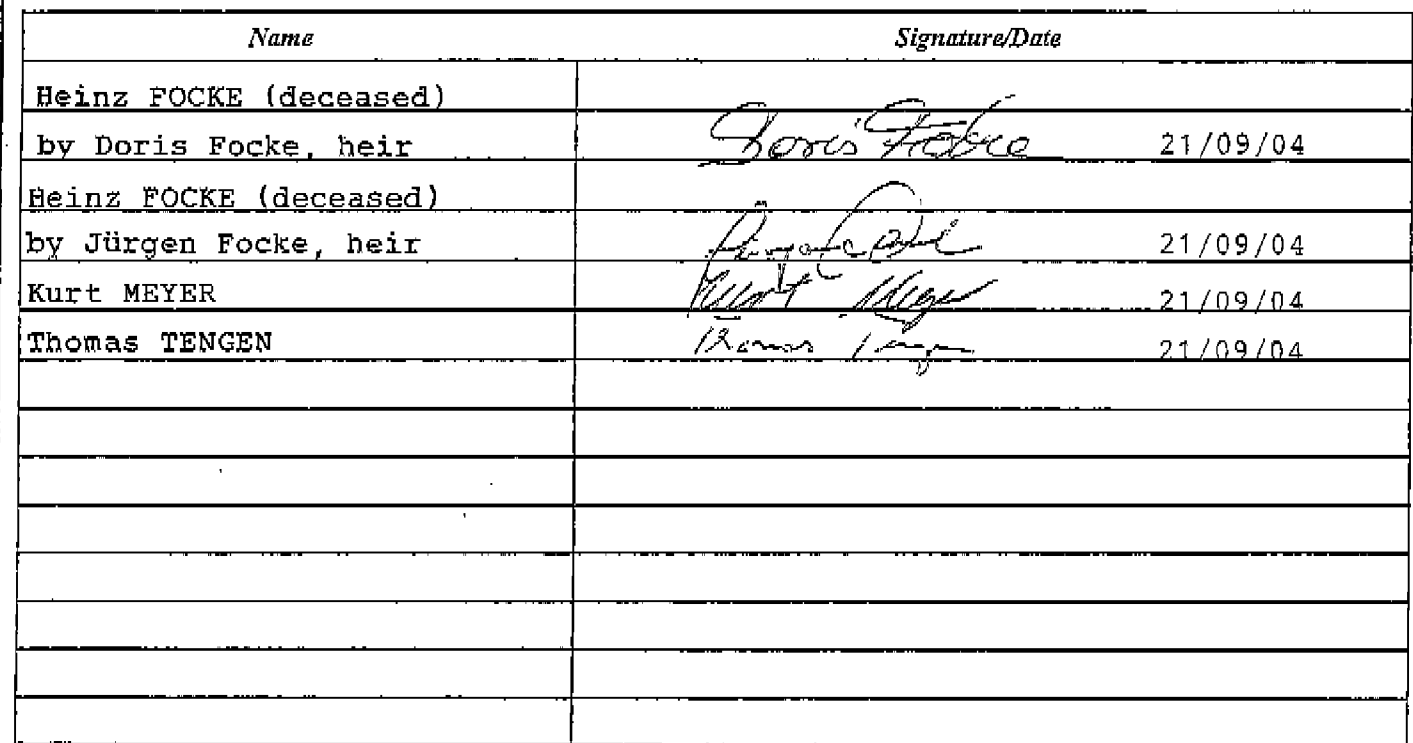 Name Signature/Date
Heinz FOCKE (deceased)
by Doris Focke, heir Doris Focke 21/09/04
Heinz FOCKE (deceased)
by Jürgen Focke, heir 21/09/04
Kurt MEYER Kurt Meyer 21/09/04
Thomas TENGEN Thomas Tengen 21/09/04